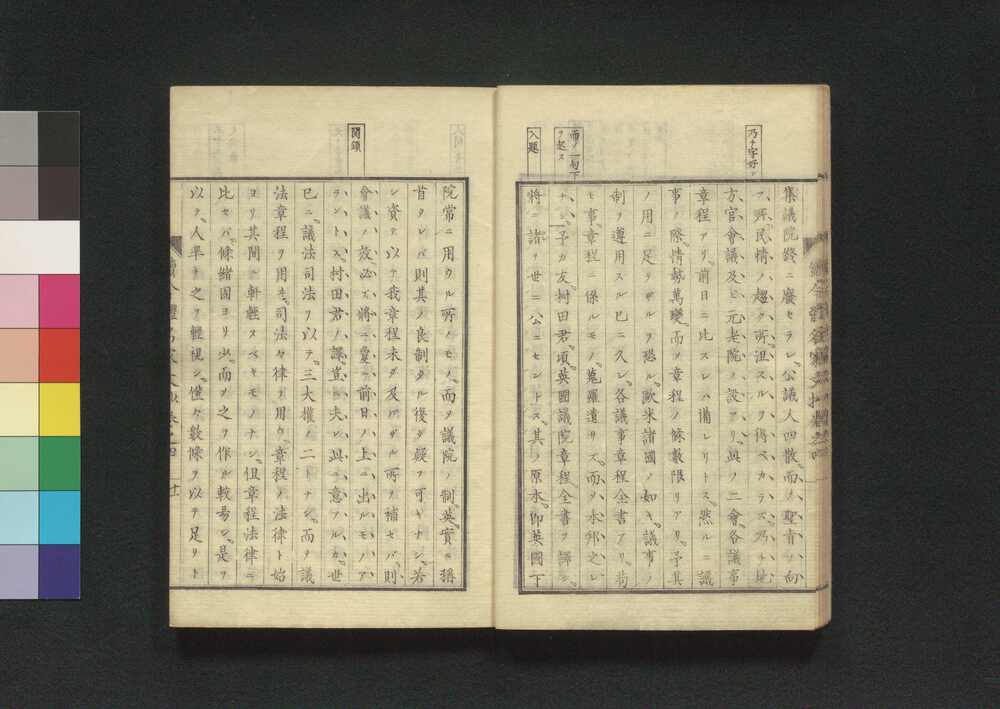 乃チ字好シ
而ノ一句下
ヲ起ス
入題
集議院終ニ廢セラレ公議人四散而ノ聖旨ノ向
フ所民情ノ趨ク所沮スルヲ得ベカラズ乃チ地
方官會議及ビ元老院ノ設アリ此ノ二會各議事
章程アリ前日ニ比スレハ備レリトス然ルニ議
事ノ際情勢萬變而ノ章程ノ條數限リアリ予其
ノ用ニ足ラザルヲ恐ル歐米諸國ノ如キ議事ノ
制ヲ遵用スル已ニ久シ各議事章程全書アリ苟
モ事章程ニ係ルモノ蒐羅遺サズ而ヲ本邦之レ
ナシ予カ友村田君頃英國議院章程全書ヲ譯シ
將ニ諸ヲ世ニ公ニセントス其ノ原本即英國下
關鎖
院常ニ用ウル所ノモノ而ヲ議院ノ制英實ニ稱
首タレバ則其ノ良制タル後ヲ疑フ可キナシ若
シ資テ以テ我章程未ダ及バザル所ヲ補セバ則
會議ノ效必ズ將ニ實ニ前日ノ上ニ出ルモノア
ラントス村田君ノ譯豈ニ夫レ此ニ意アルカ世
已ニ議法司法ヲ以テ三大權ノ二トナシ而ヲ議
法章程ヲ用ヰ司法々律ヲ用ウ章程ノ法律ト始
ヨリ其間ニ軒輊スベキモノナシ但章程法律ニ
比セバ條緒固ヨリ少而ヲ之ヲ作ル較易シ是ヲ
以テ人率ネ之ヲ輕視シ僅々數條ヲ以テ足リト